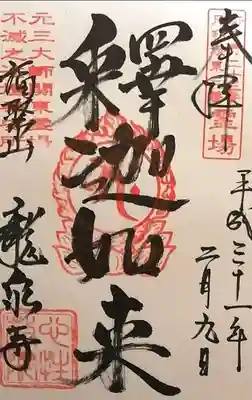 奉拝
霊場
平成三十一年
二月九日
釋迦如来
元三大師関東霊場
不滅之
福聚山
龍泉寺